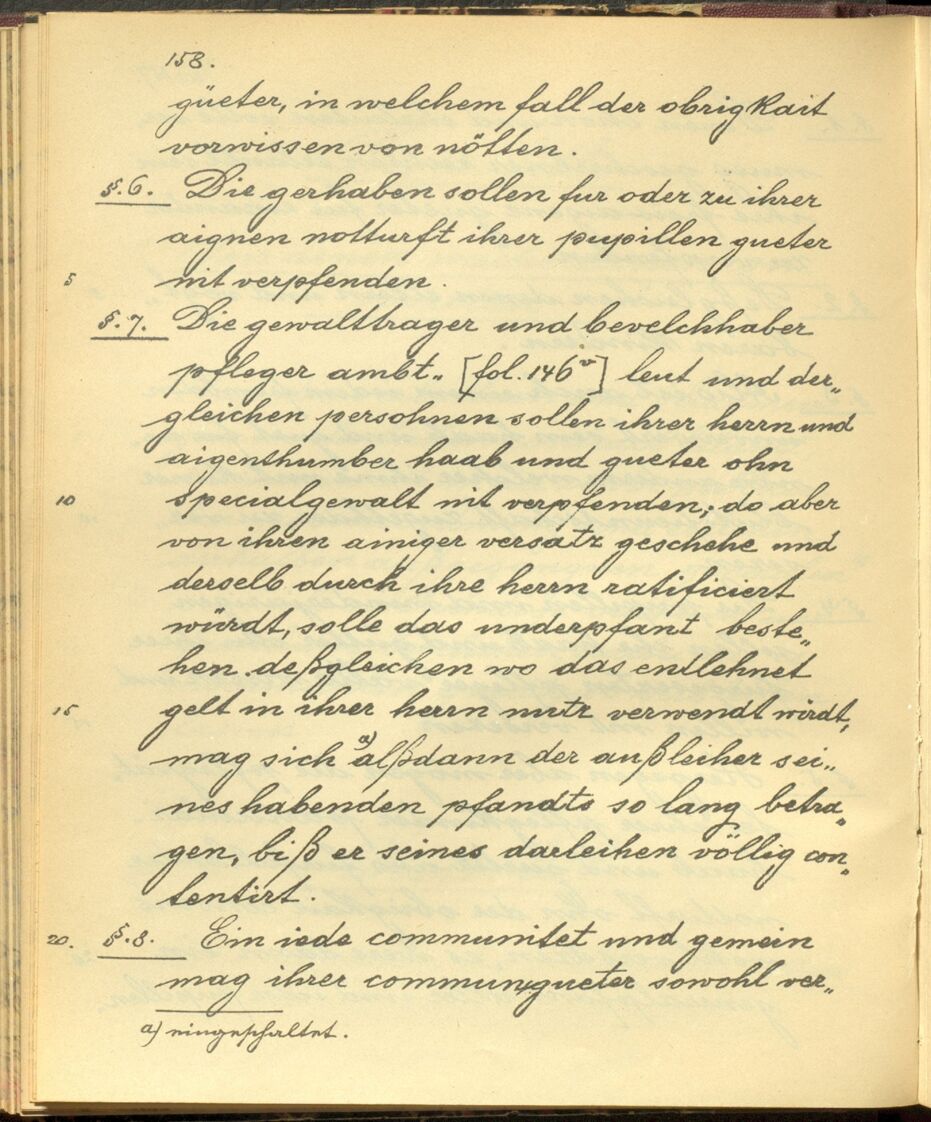 158.
güeter, in welchem fall der obrigkait
vorwissen von nötten.
§.6. Die gerhaben sollen fur oder zu ihrer
aignen notturft ihrer pupillen gueter
5 nit verpfenden.
§.7. Die gewalttrager und bevelchhaber
pfleger ambt„ [fol. 146v] leut und der„
gleichen persohnen sollen ihrer herrn und
aigenthumber haab und gueter ohn
10 specialgewalt nit verpfenden; do aber
von ihren ainiger versatz geschehe und
derselb durch ihre herrn ratificiert
würdt, solle das underpfant beste„
hen. deßgleichen wo das entlehnet
15 gelt in ihrer herrn nutz verwendt wirdt,
mag sich a) alßdann der außleiher sei„
nes habenden pfandts so lang betra„
gen, biß er seines darleihen völlig con„
tentirt.
20. §.8. Ein iede communitet und gemein
mag ihrer commungueter sowohl ver„
a) eingeschaltet.